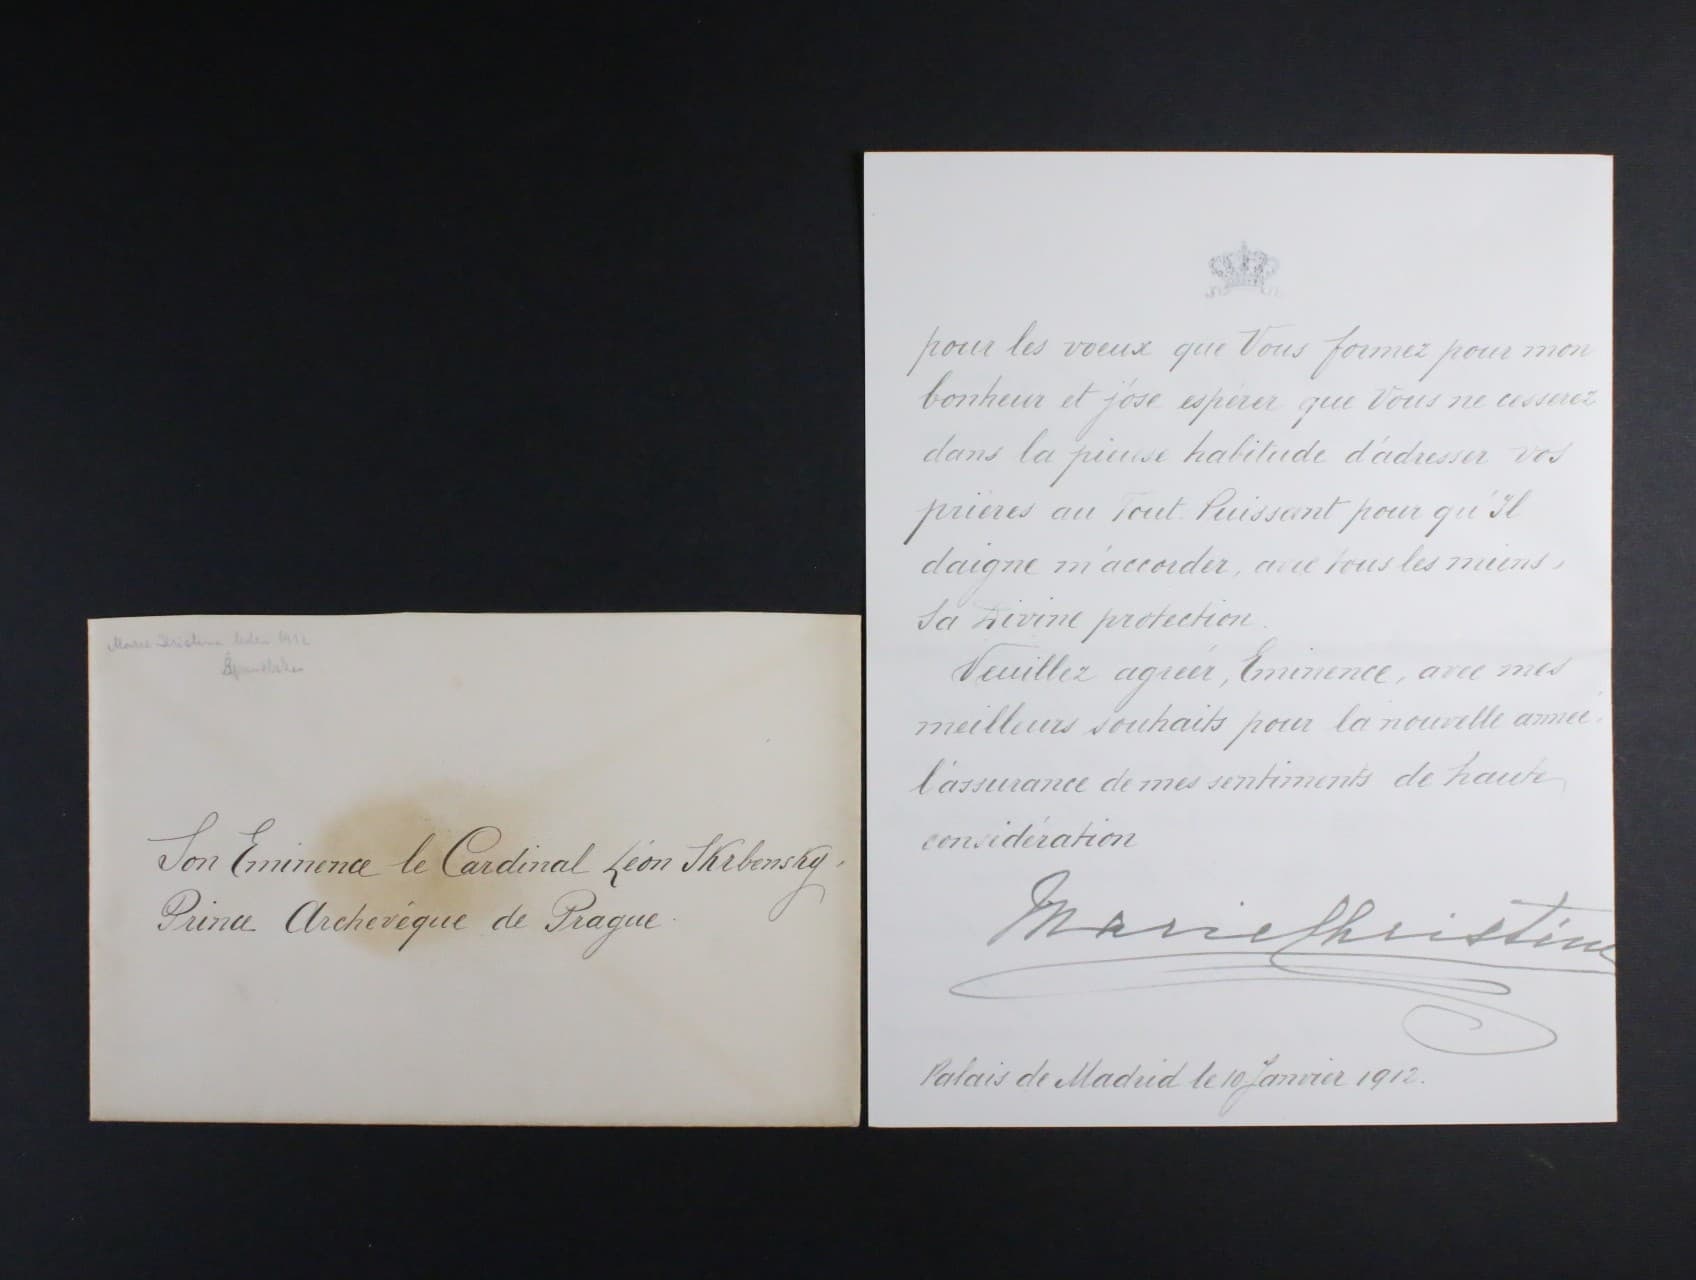 Son Eminence le Cardinal Léon Skrbensky,
Prince Archevéque de Prague.
pour les voeux que Vous formez pour mon
bonheur et j'ose espérer que Vous ne cesserez
dans la pieuse habitude d'adresser vos
prières au Tout-Puissant pour qu'Il
daigne m'accorder, avec tous les miens,
Sa Divine protection.
Veuillez agréer, Eminence, avec mes
meilleurs souhaits pour la nouvelle année,
l'assurance de mes sentiments de haute
considération
Marie Christine
Palais de Madrid le 10 Janvier 1912.
1912